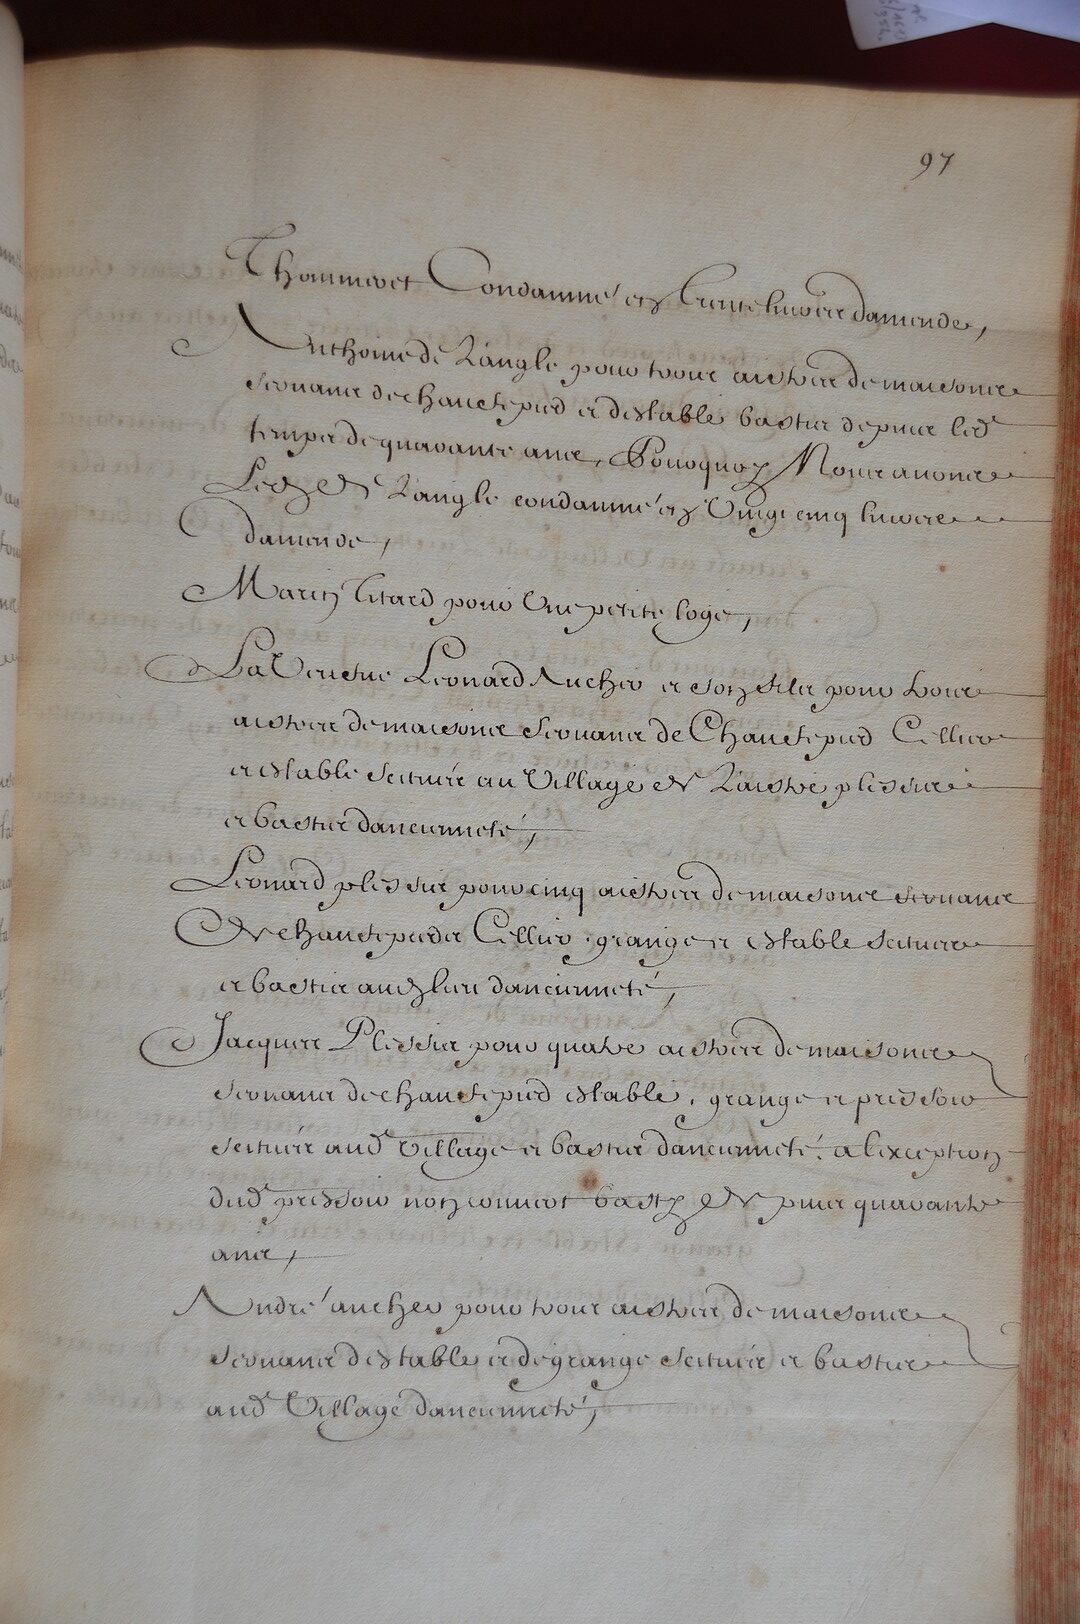 97
Thommeret Condamné en trente livres damende,
Anthoine de Langle pour trois aistres de maisons
servans de chauffepied et destable bastis depuis led.
temps de quarante ans, Pourquoy Nous avons
Led. de Langle condamné en Vingt cinq livres
damende,
Marin Titard pour Une petite loge,
La Veufve Leonard Aucher et son fils pour trois
aistres de maisons servans de Chauffepied Cellier
et estable scitués au Village de plessis
et bastis dancienneté,
Leonard plessis pour cinq aistres de maisons servans
de chauffepied et Cellier grange et estable scitués
et bastis aud. lieu dancienneté,
Jacques Plessis pour quatre aistres de maisons
servans de chauffepied estable, grange et pressoir
scitués aud. Village et bastis dancienneté, a lexception
dud. pressoir non couvert basty depuis quarante
ans,
André aucher pour trois aistres de maisons
servans destable et de grange scitués et bastis
aud. Village dancienneté,